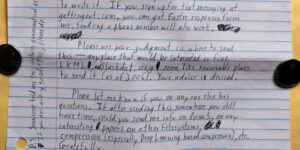 to write it. If you sign up for text messaging at
gettingout.com, you can get faster responses from
me. Sending a phone number will also work.
Please use your judgment in where to send
this — any place that would be interested is fine.
LKML, seem like reasonable places
to send it (as of 2006). Your advice is desired.
Please let me know if you or anyone else has
questions. If after sending this somewhere you still
have time, could you send me info on Reiser5, or any
interesting papons on other filesystems,
compression (especially Deep Learning based compression), etc.
Gratefully